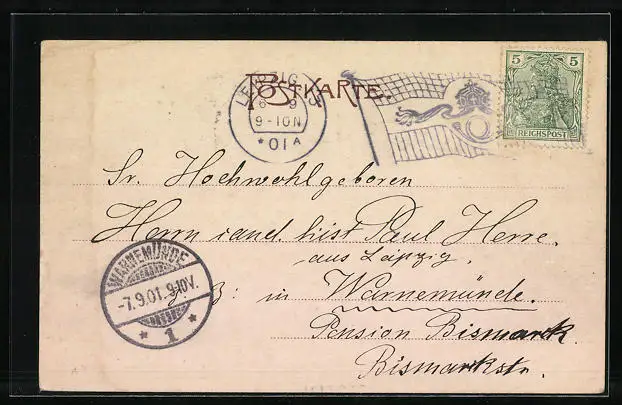 POSTKARTE.
LEIPZIG
6 9
9-10N
*01A
5
REICHSPOST
Sr. Hochwohlgeboren
Herrn cand. hist Paul Herre.
aus Leipzig.
z. Z: in Warnemünde.
Pension Bismarck
Bismarkstr.
WARNEMÜNDE
-7.9.01.9-10V.
* 1 *